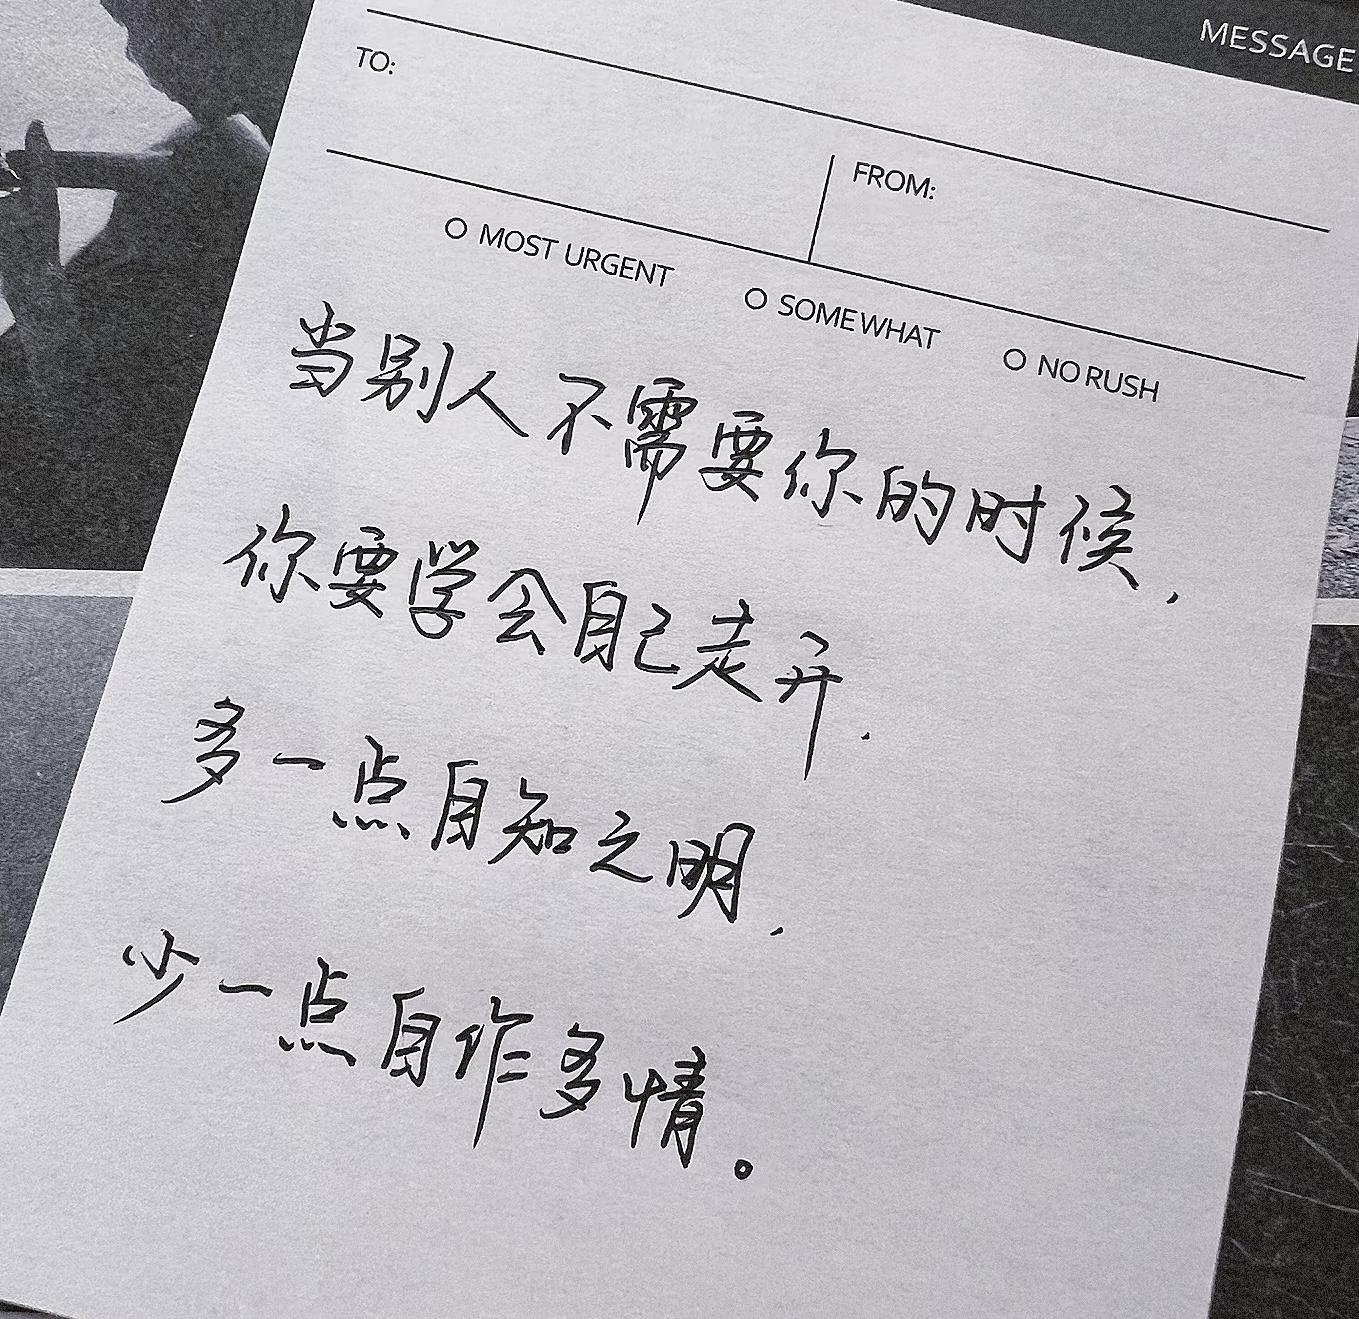 MESSAGE
TO:
FROM:
MOST URGENT
SOMEWHAT
NO RUSH
当别人不需要你的时候,
你要学会自己走开.
多一点自知之明,
少一点自作多情。